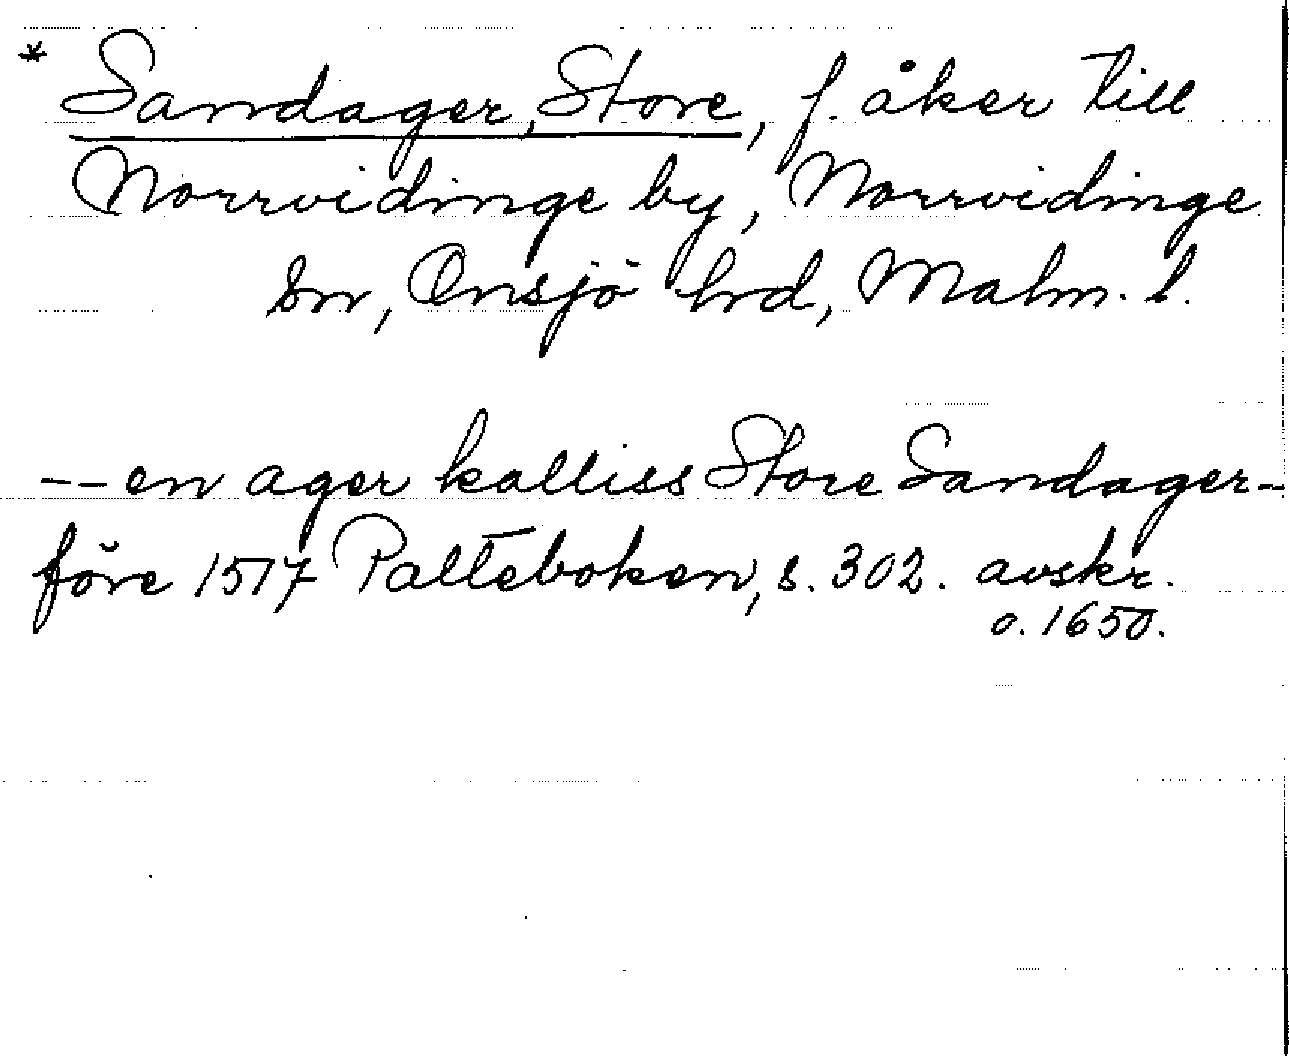 * Sandager, Store, f. åker till
Norrvidinge by, Norrvidinge
sn, Onsjö hrd, Malm. l.
-- en ager kalliss Store Sandager -
före 1517 Palteboken, s. 302. avskr.
o. 1650.